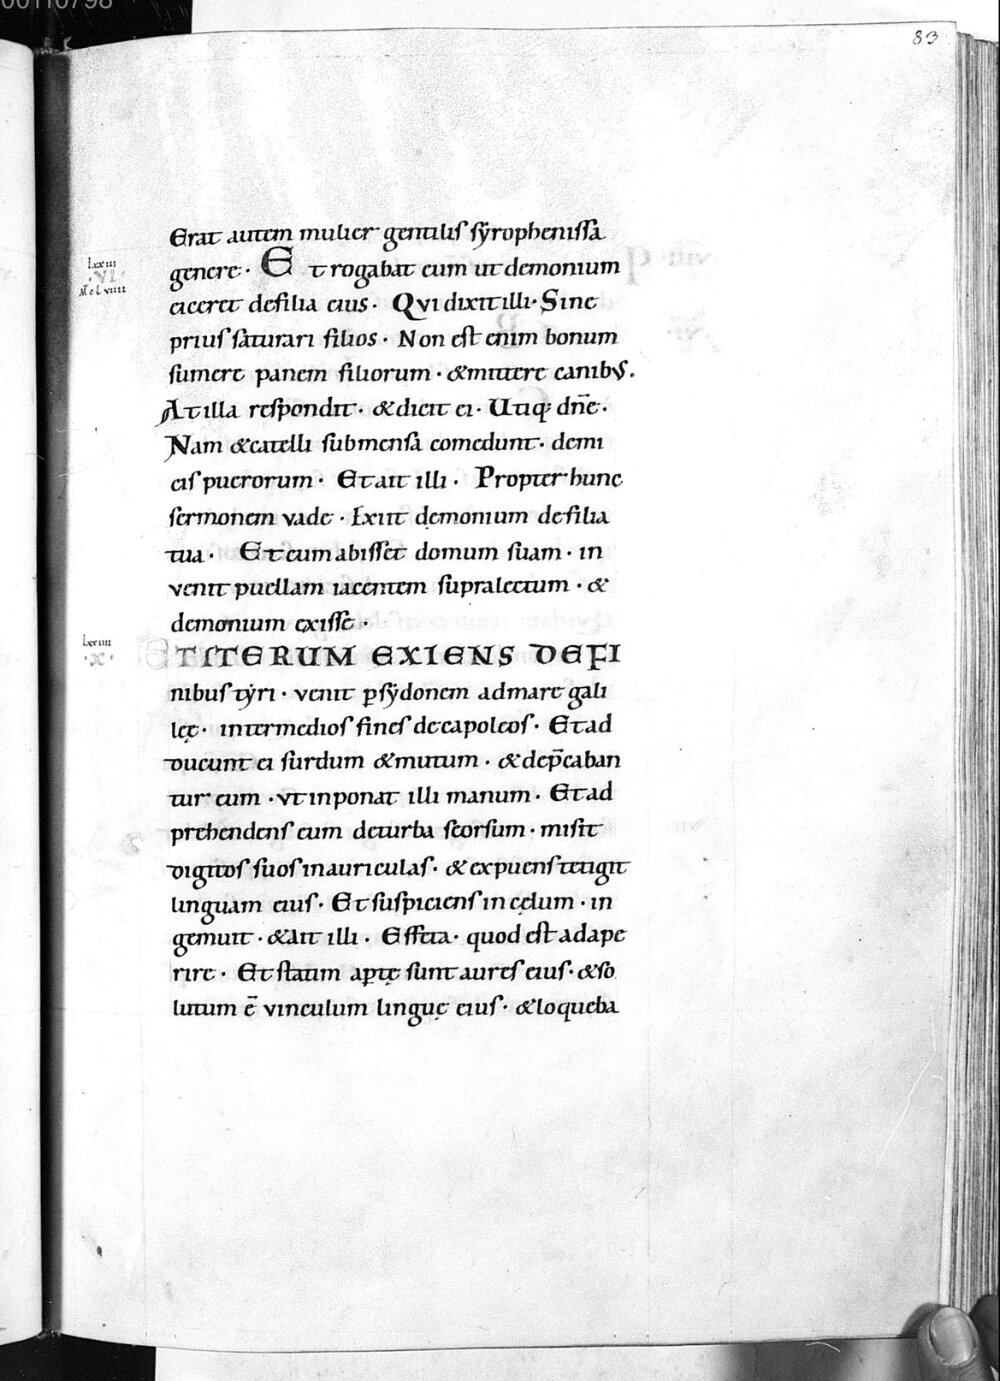 00110798
83
Erat autem mulier gentilis syrophenissa
lxxiii
·VI·
genere· Et rogabat eum ut demonium
eiceret defilia eius· Qui dixit illi· Sine
prius saturari filios· Non est enim bonum
sumere panem filiorum· &mittere canibus.
At illa respondit· &dicit ei· Utiq; dn̄e·
Nam &catelli submensa comedunt· demi
cis puerorum· Et ait illi· Propter hunc
sermonem vade· Exiit demonium defilia
tua· Et cum abisset domum suam· in
venit puellam iacentem supralectum· &
demonium exisse·
lxxiiii
·x·
ET ITERUM EXIENS DEFI
nibus tyri· venit p sydonem admare gali
leę· intermedios fines decapoleos· Et ad
ducunt ei surdum &mutum· &dep̄caban
tur eum· ut inponat illi manum· Et ad
prehendens eum deturba seorsum· misit
digitos suos inauriculas· &expuens tetigit
linguam eius· Et suspiciens in cęlum· in
gemuit· &ait illi· Effeta· quod est adape
rire· Et statim apte sunt aures eius· &so
lutum ē vinculum linguę eius· &loqueba